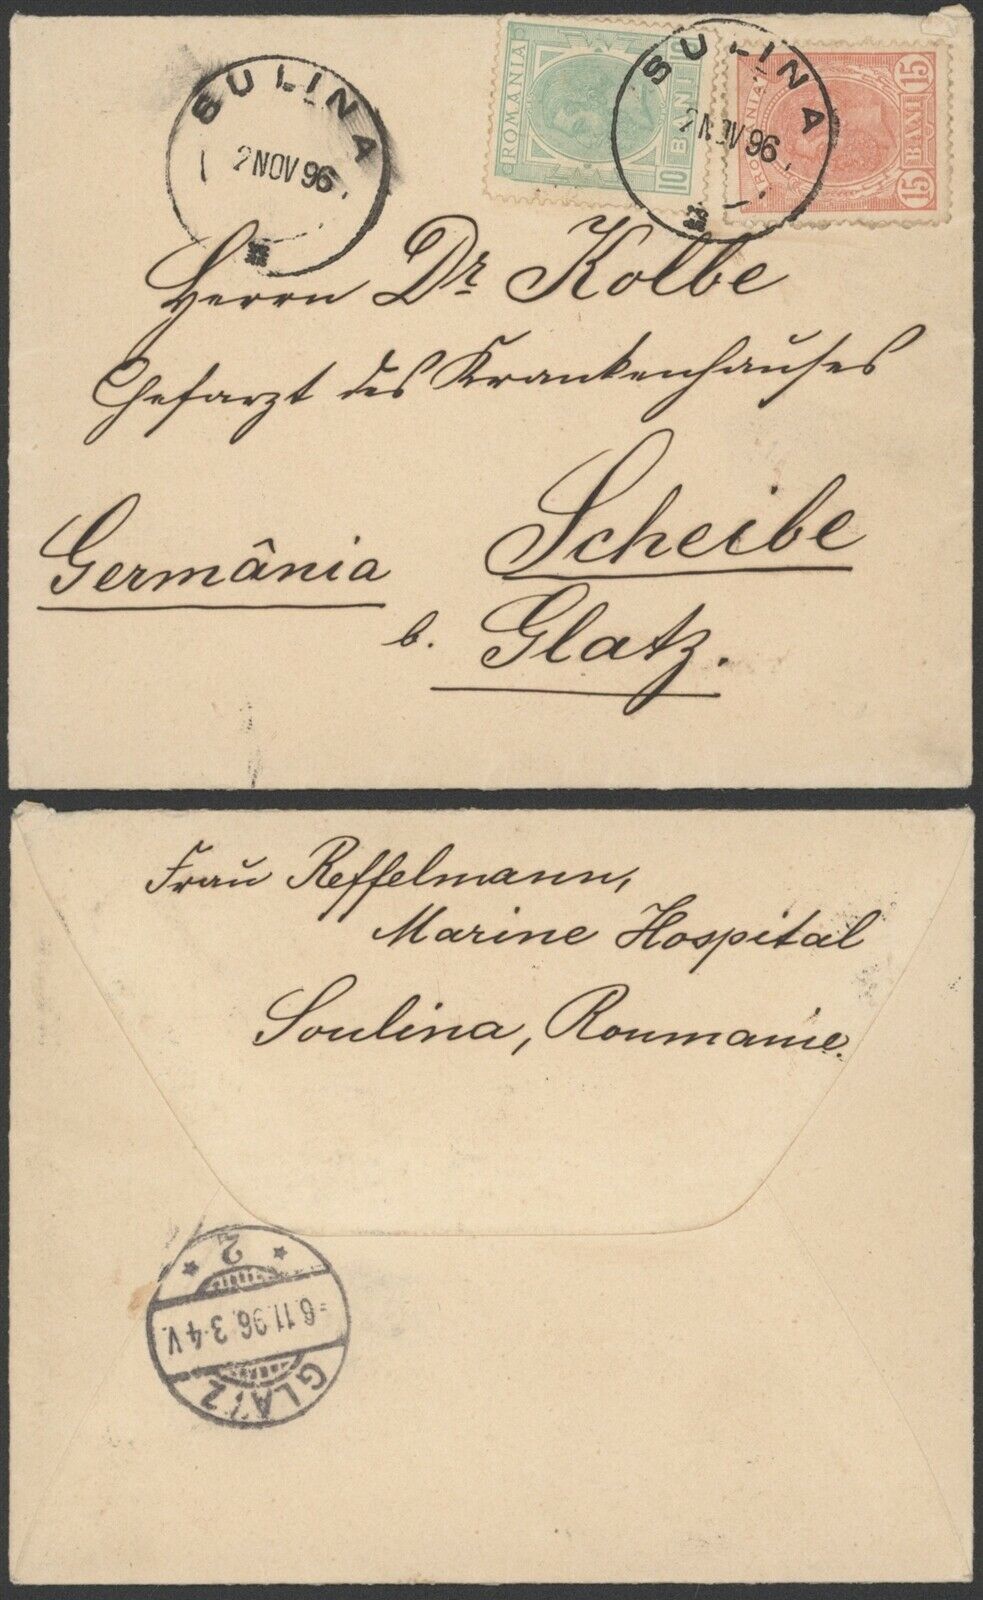 SULINA
2 NOV 96
ROMANIA
10 BANI 10
SULINA
2 NOV 96
ROMANIA
15 BANI 15
Herrn Dr Kolbe
Chefarzt des Krankenhauses
Germânia Scheibe
b. Glatz.
Frau Reffelmann,
Marine Hospital
Soulina, Roumanie.
* 2 *
-6.11.96.3-4V.
GLATZ